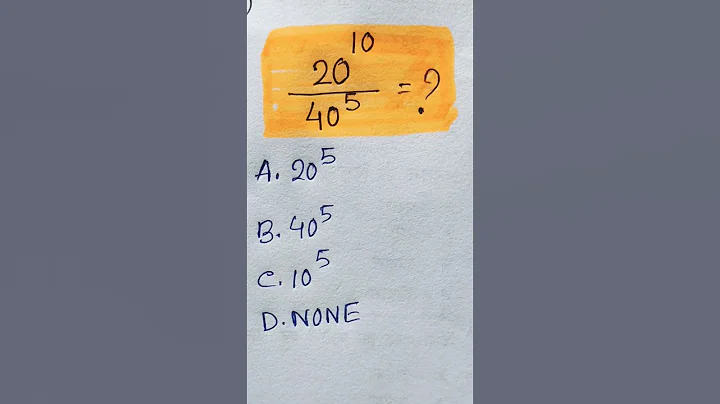 20^10
40^5 = ?
A. 20^5
B. 40^5
C. 10^5
D. NONE